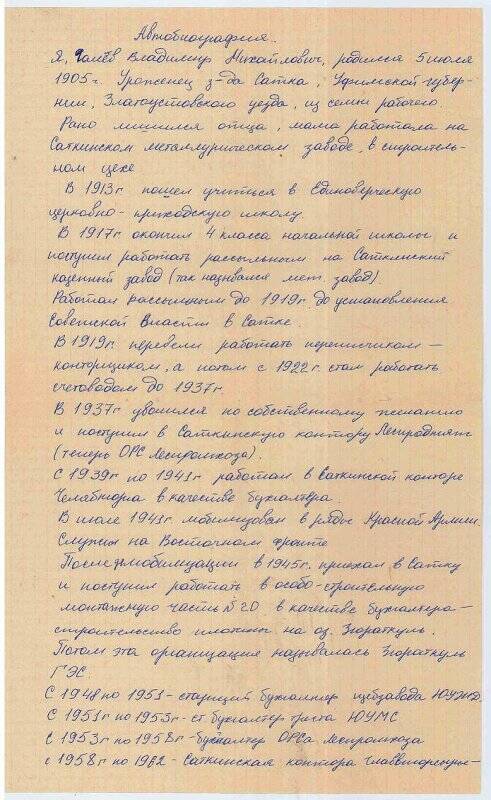 Автобиография.
Я, Галёв Владимир Михайлович, родился 5 июля
1905 г. Уроженец з-да Сатка, Уфимской губер-
нии, Златоустовского уезда, из семьи рабочего.
Рано лишился отца, мама работала на
Саткинском металлургическом заводе, в строитель-
ном цехе
В 1913 г пошел учиться в Единоверческую
церковно-приходскую школу.
В 1917 г окончил 4 класса начальной школы и
поступил работать рассыльным на Саткинский
казенный завод (так назывался мет. завод).
Работал рассыльным до 1919 г. до установления
Советской Власти в Сатке.
В 1919 г. перевели работать переписчиком –
конторщиком, а потом с 1922 г. стал работать
счетоводом до 1937 г
В 1937 г уволился по собственному желанию
и поступил в Саткинскую контору Леспродтяж
(теперь ОРС Леспромхоза).
С 1939 г по 1941 г работал в Саткинской конторе
Челябторга в качестве бухгалтера.
В июле 1941 г. мобилизован в ряды Красной Армии.
Служил на Восточном фронте
После демобилизации в 1945 г. приехал в Сатку
и поступил работать в особо-строительную
монтажную часть № 20 в качестве бухгалтера –
строительство плотины на оз. Зюраткуль.
Потом эта организация называлась Зюраткуль
ГЭС.
С 1948 по 1951 - старший бухгалтер щебзавода ЮУЖД.
С 1951 г по 1953 г - ст бухгалтер треста ЮУМС
С 1953 г по 1958 г - бухгалтер ОРСа Леспромхоза
с 1958 г по 1962 - Саткинская контора Главвторсырье –